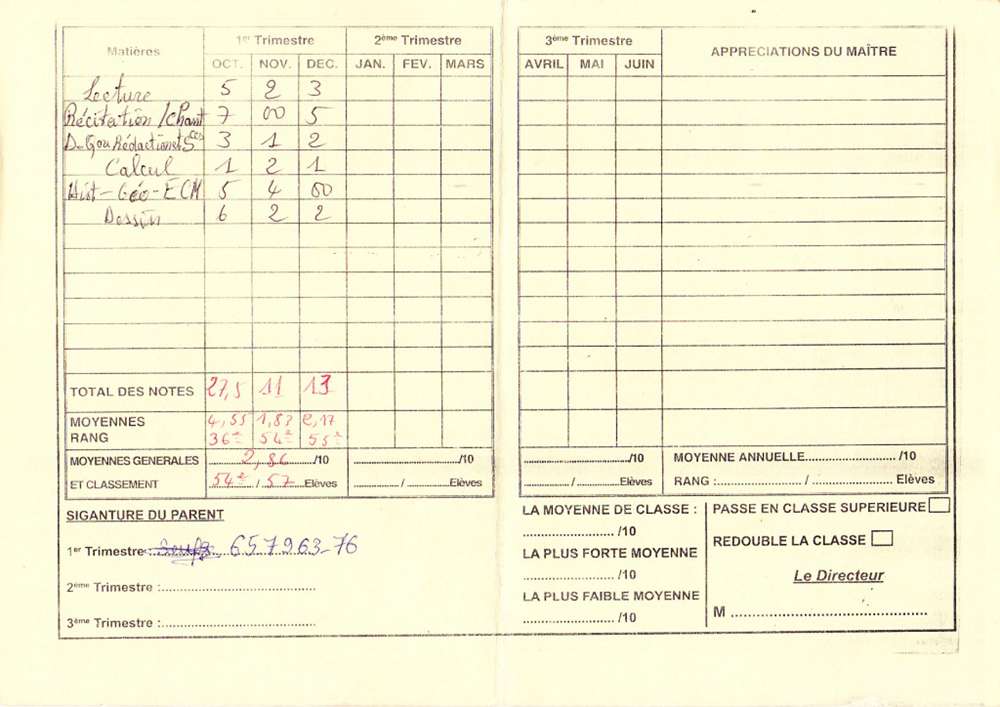 Matières 1er Trimestre 2ème Trimestre 3ème Trimestre APPRECIATIONS DU MAÎTRE
OCT. NOV. DEC. JAN. FEV. MARS AVRIL MAI JUIN
Lecture 5 2 3
Récitation/Chant 7 00 5
3 1 2
Calcul 1 2 1
Hist-Géo-ECM 5 4 00
Dessin 6 2 2
TOTAL DES NOTES 27,5 11 13
MOYENNES 4,55 1,83 2,17
RANG 36e 54e 55e
MOYENNES GENERALES 2,86 /10 /10 /10 MOYENNE ANNUELLE /10
ET CLASSEMENT 54e / 57 Elèves / Elèves / Elèves RANG : / Elèves
SIGANTURE DU PARENT
1er Trimestre 657963-76
2ème Trimestre :
3ème Trimestre :
LA MOYENNE DE CLASSE :
/10
LA PLUS FORTE MOYENNE
/10
LA PLUS FAIBLE MOYENNE
/10
PASSE EN CLASSE SUPERIEURE
REDOUBLE LA CLASSE
Le Directeur
M